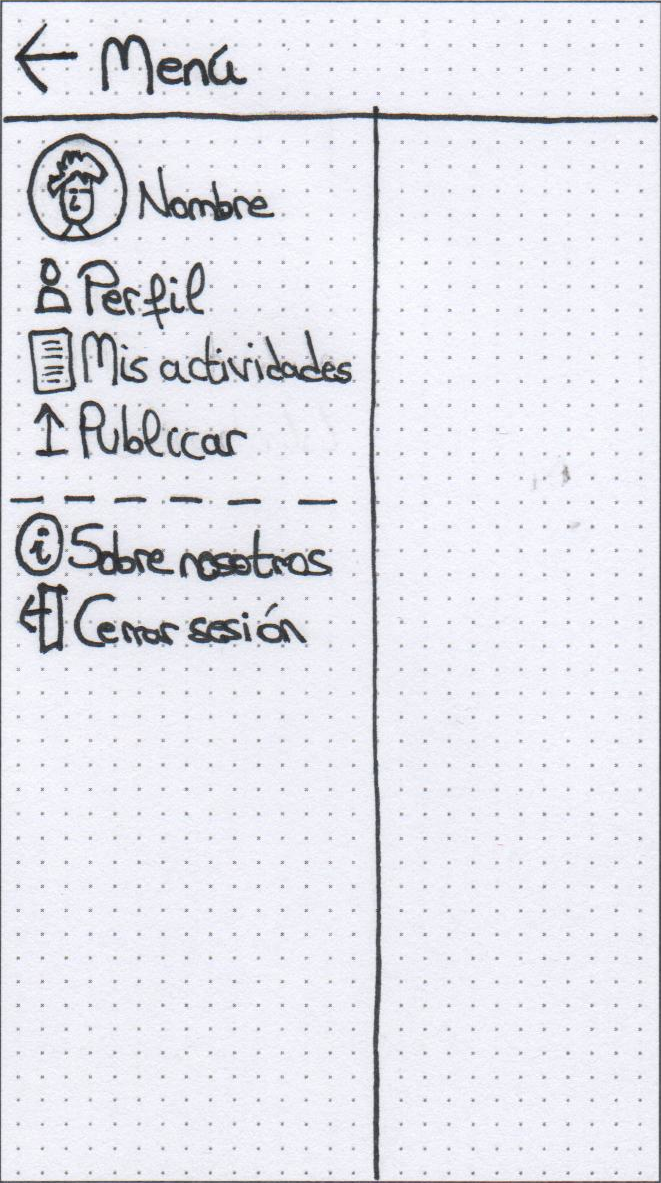 Menú
Nombre
Perfil
Mis actividades
Publicar
i Sobre nosotros
Cerrar sesión